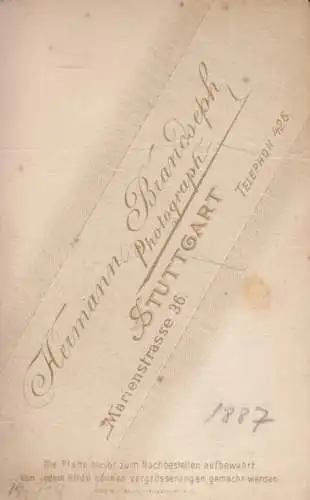 Hermann Brandseph
Photograph
STUTTGART
Marienstrasse 36.
TELEPHON 426
1887
Die Platte bleibt zum Nachbestellen aufbewahrt
Von jedem Bilde können vergrösserungen gemacht werden